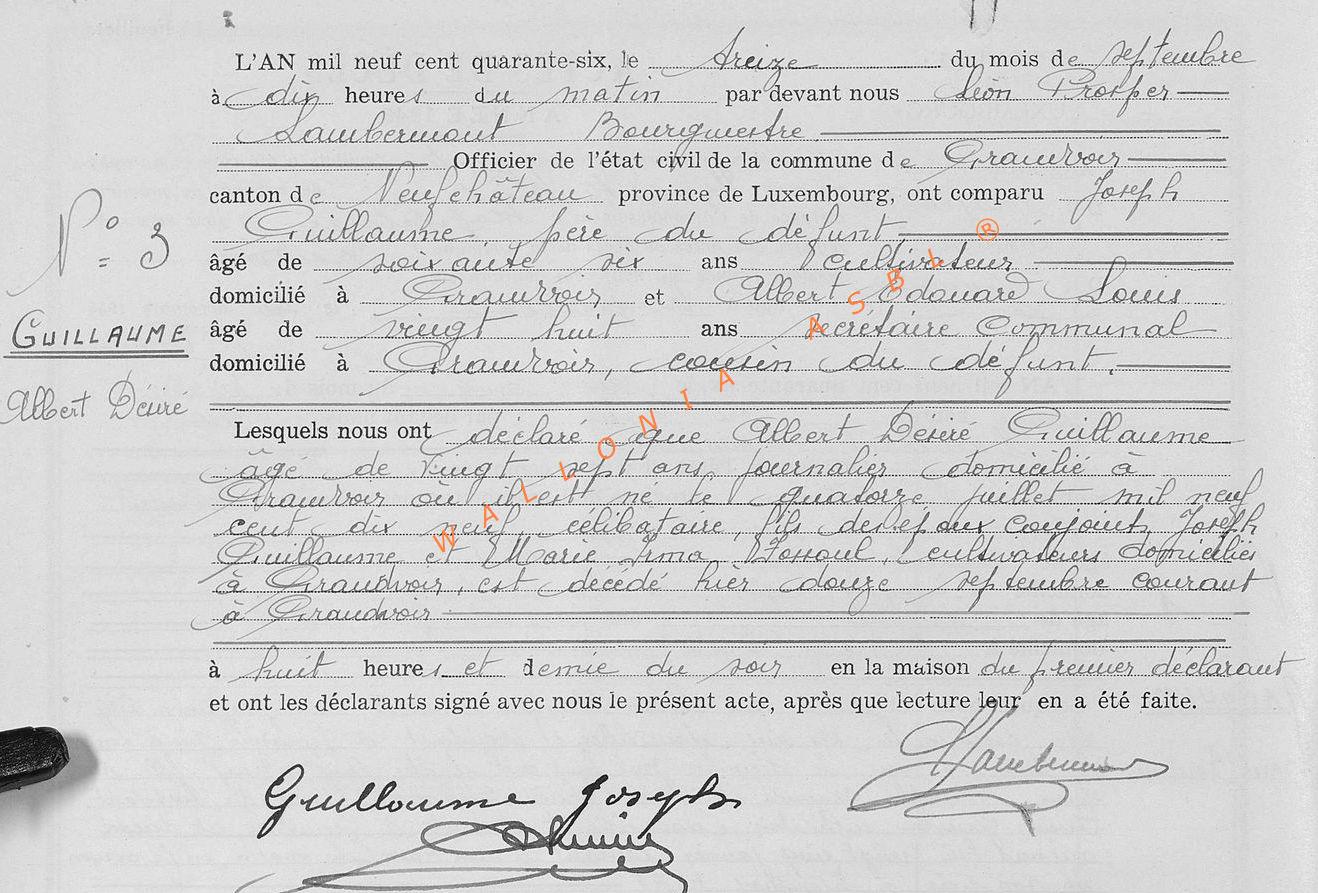 L'AN mil neuf cent quarante-six, le treize du mois de septembre
à dix heures du matin par devant nous Léon Prosper
Lambermont Bourgmestre
Officier de l'état civil de la commune de Grandvoir
canton de Neufchâteau province de Luxembourg, ont comparu Joseph
N° 3
Guillaume, père du défunt
âgé de soixante six ans cultivateur
domicilié à Grandvoir et Albert Edouard Louis
GUILLAUME
âgé de vingt huit ans secrétaire Communal
domicilié à Grandvoir, cousin du défunt.
Albert Désiré
Lesquels nous ont déclaré que Albert Désiré Guillaume
âgé de vingt sept ans journalier domicilié à
Grandvoir où il est né le quatorze juillet mil neuf
cent dix neuf, célibataire, fils des époux conjoints Joseph
Guillaume et Marie Irma Fossoul, cultivateurs domiciliés
à Grandvoir, est décédé hier douze septembre courant
à Grandvoir
à huit heures et demie du soir en la maison du premier déclarant
et ont les déclarants signé avec nous le présent acte, après que lecture leur en a été faite.
Guillaume Joseph
WALLONIA ASBL ®